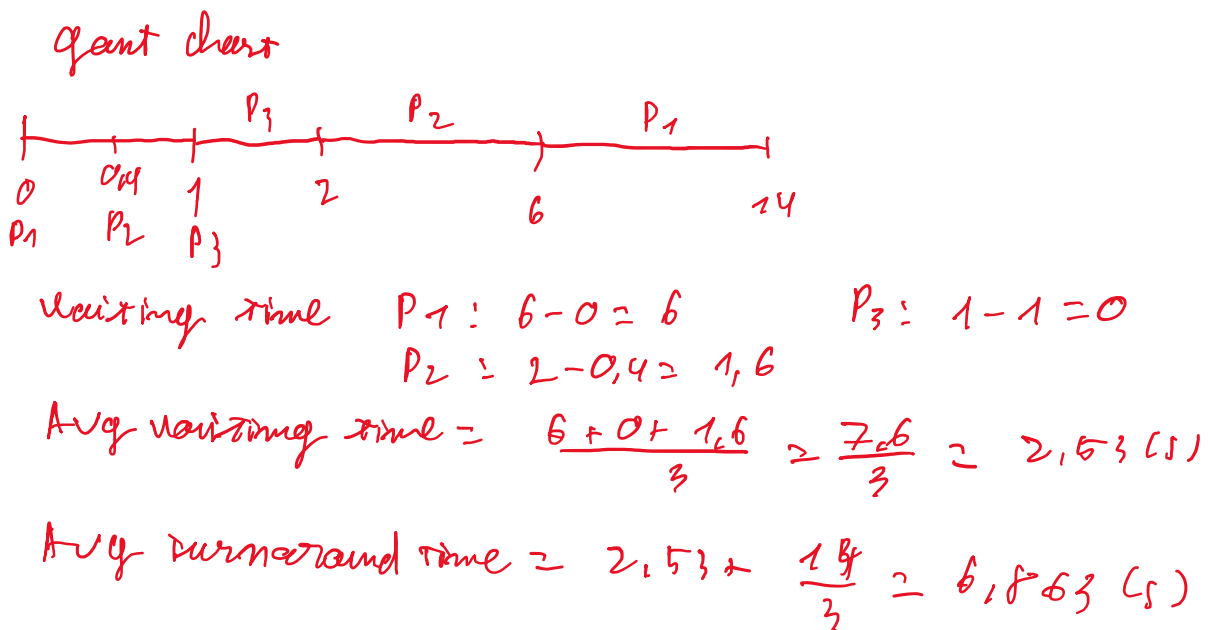 gant chart
P3 P2 P1
0 0,4 1 2 6 14
P1 P2 P3
Waiting time P1 : 6 - 0 = 6 P3 : 1 - 1 = 0
P2 : 2 - 0,4 = 1,6
Avg waiting time = 6 + 0 + 1,6 / 3 = 7,6 / 3 = 2,53 (s)
Avg turnaround time = 2,53 + / 3 = 6,863 (s)